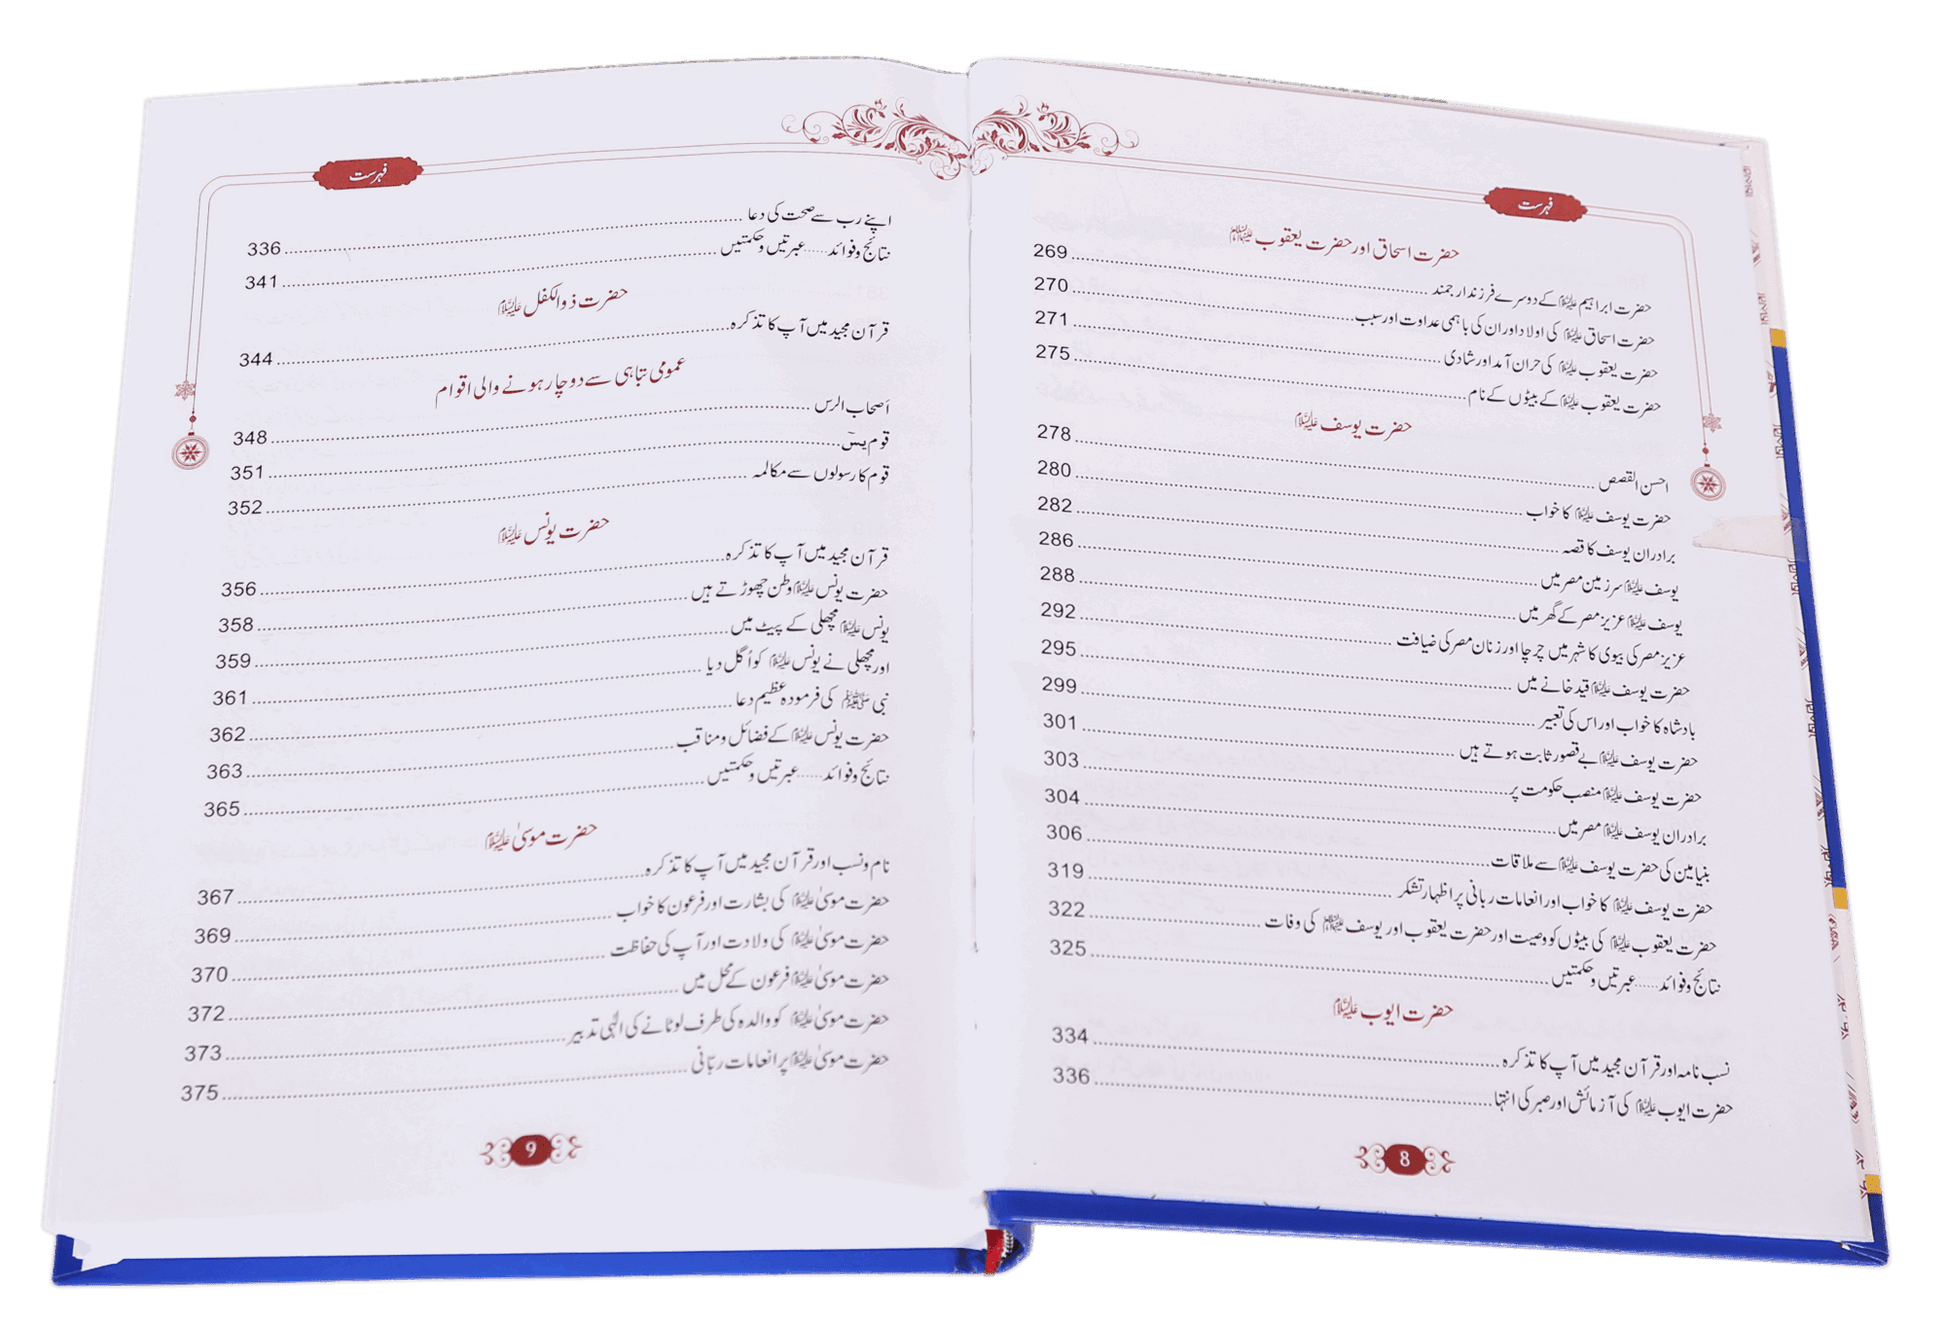 فہرست
حضرت اسحاق اور حضرت یعقوب علیہما السلام
حضرت ابراہیم علیہ السلام کے دوسرے فرزند ارجمند 269
حضرت اسحاق علیہ السلام کی اولاد اور ان کی باہمی عداوت اور سبب 270
حضرت یعقوب علیہ السلام کی حران آمد اور شادی 271
حضرت یعقوب علیہ السلام کے بیٹوں کے نام 275
حضرت یوسف علیہ السلام
احسن القصص 278
حضرت یوسف علیہ السلام کا خواب 280
برادران یوسف کا قصہ 282
یوسف علیہ السلام سرزمین مصر میں 286
یوسف علیہ السلام عزیز مصر کے گھر میں 288
عزیز مصر کی بیوی کا شہر میں چرچا اور زنان مصر کی ضیافت 292
حضرت یوسف علیہ السلام قید خانے میں 295
بادشاہ کا خواب اور اس کی تعبیر 299
حضرت یوسف علیہ السلام بے قصور ثابت ہوتے ہیں 301
حضرت یوسف علیہ السلام منصب حکومت پر 303
برادران یوسف علیہ السلام مصر میں 304
بنیامین کی حضرت یوسف علیہ السلام سے ملاقات 306
حضرت یوسف علیہ السلام کا خواب اور انعامات ربانی پر اظہار تشکر 319
حضرت یعقوب علیہ السلام کی بیٹوں کو وصیت اور حضرت یعقوب اور یوسف علیہما السلام کی وفات 322
نتائج و فوائد ...... عبرتیں و حکمتیں 325
حضرت ایوب علیہ السلام
نسب نامہ اور قرآن مجید میں آپ کا تذکرہ 334
حضرت ایوب علیہ السلام کی آزمائش اور صبر کی انتہا 336
8
فہرست
اپنے رب سے صحت کی دعا 336
نتائج و فوائد ...... عبرتیں و حکمتیں 341
حضرت ذوالکفل علیہ السلام
قرآن مجید میں آپ کا تذکرہ 344
عمومی تباہی سے دوچار ہونے والی اقوام
اَصحاب الرس 348
قوم یسٓ 351
قوم کا رسولوں سے مکالمہ 352
حضرت یونس علیہ السلام
قرآن مجید میں آپ کا تذکرہ 356
حضرت یونس علیہ السلام وطن چھوڑتے ہیں 358
یونس علیہ السلام مچھلی کے پیٹ میں 359
اور مچھلی نے یونس علیہ السلام کو اُگل دیا 361
نبی ﷺ کی فرمودہ عظیم دعا 362
حضرت یونس علیہ السلام کے فضائل و مناقب 363
نتائج و فوائد ...... عبرتیں و حکمتیں 365
حضرت موسیٰ علیہ السلام
نام و نسب اور قرآن مجید میں آپ کا تذکرہ 367
حضرت موسیٰ علیہ السلام کی بشارت اور فرعون کا خواب 369
حضرت موسیٰ علیہ السلام کی ولادت اور آپ کی حفاظت 370
حضرت موسیٰ علیہ السلام فرعون کے محل میں 372
حضرت موسیٰ علیہ السلام کو والدہ کی طرف لوٹانے کی الٰہی تدبیر 373
حضرت موسیٰ علیہ السلام پر انعامات ربّانی 375
9